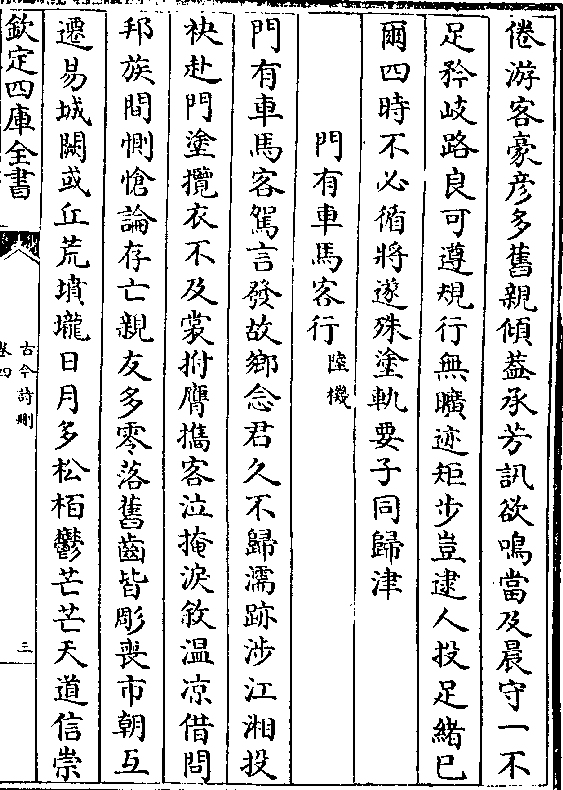 倦游客豪彦多舊親傾葢承芳訊欲鳴當及晨守一不
足矜岐路良可遵規行無曠迹矩步豈逮人投足緒已
爾四時不必循將遂殊塗軌要子同歸津
門有車馬客行陸機
門有車馬客駕言發故鄉念君久不歸濡跡涉江湘投
袂赴門塗攬衣不及裳拊膺攜客泣掩淚敘温凉借問
邦族間惻愴論存亡親友多零落舊齒皆彫喪市朝互
遷易城闕或丘荒墳壠日月多松栢鬱芒芒天道信崇
欽定四庫全書
古今詩刪
卷四
三